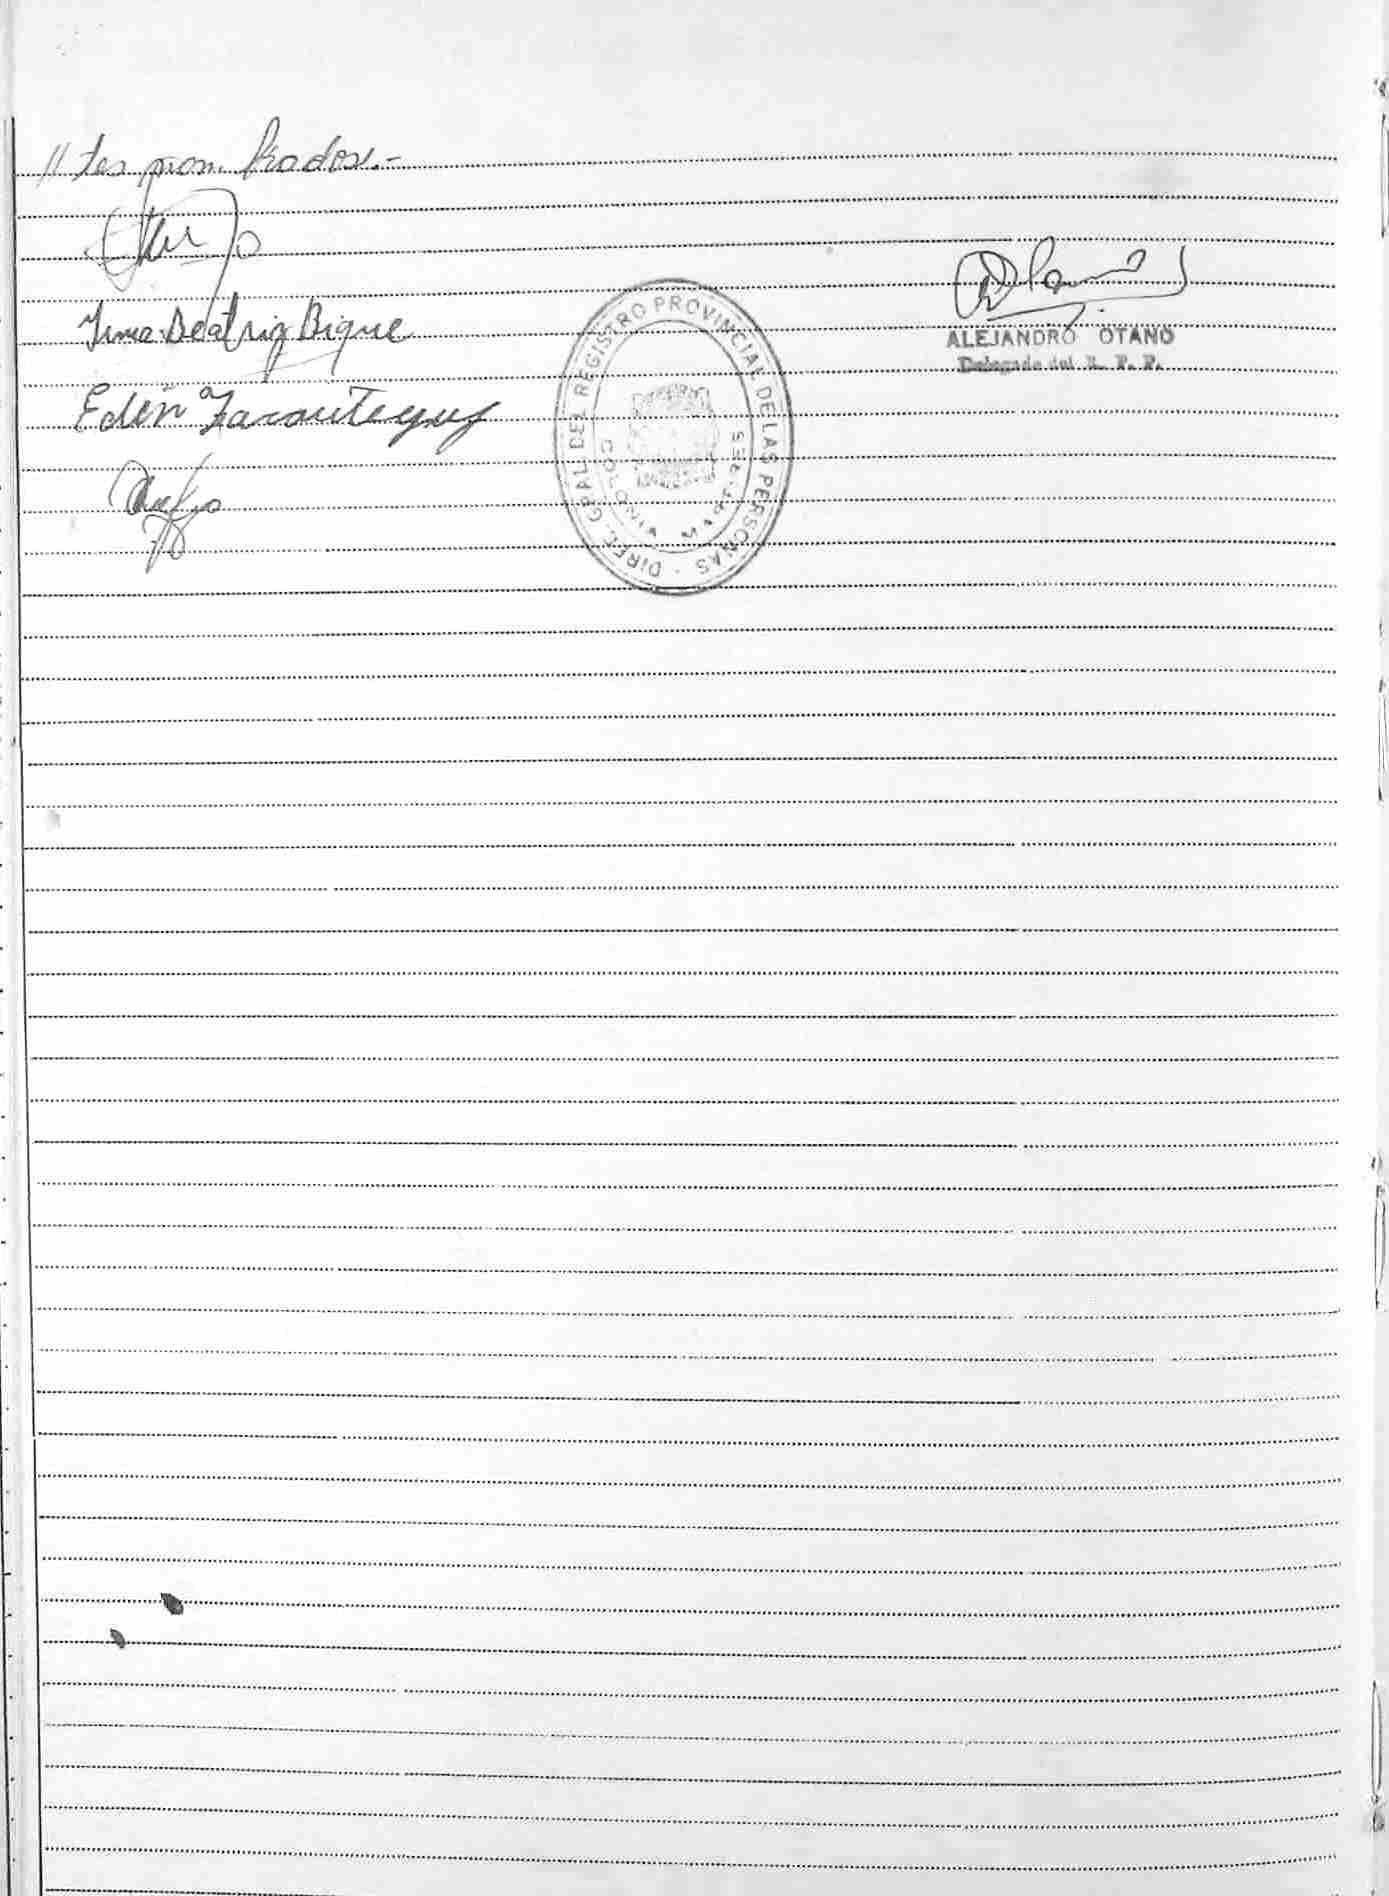 // tes nom brados.-
Irma Beatriz Bique
Edén Zarauteguy
DIREC. GRAL. DEL REGISTRO PROVINCIAL DE LAS PERSONAS
COLONIA
ALEJANDRO OTANO
Delegado del R. P. P.